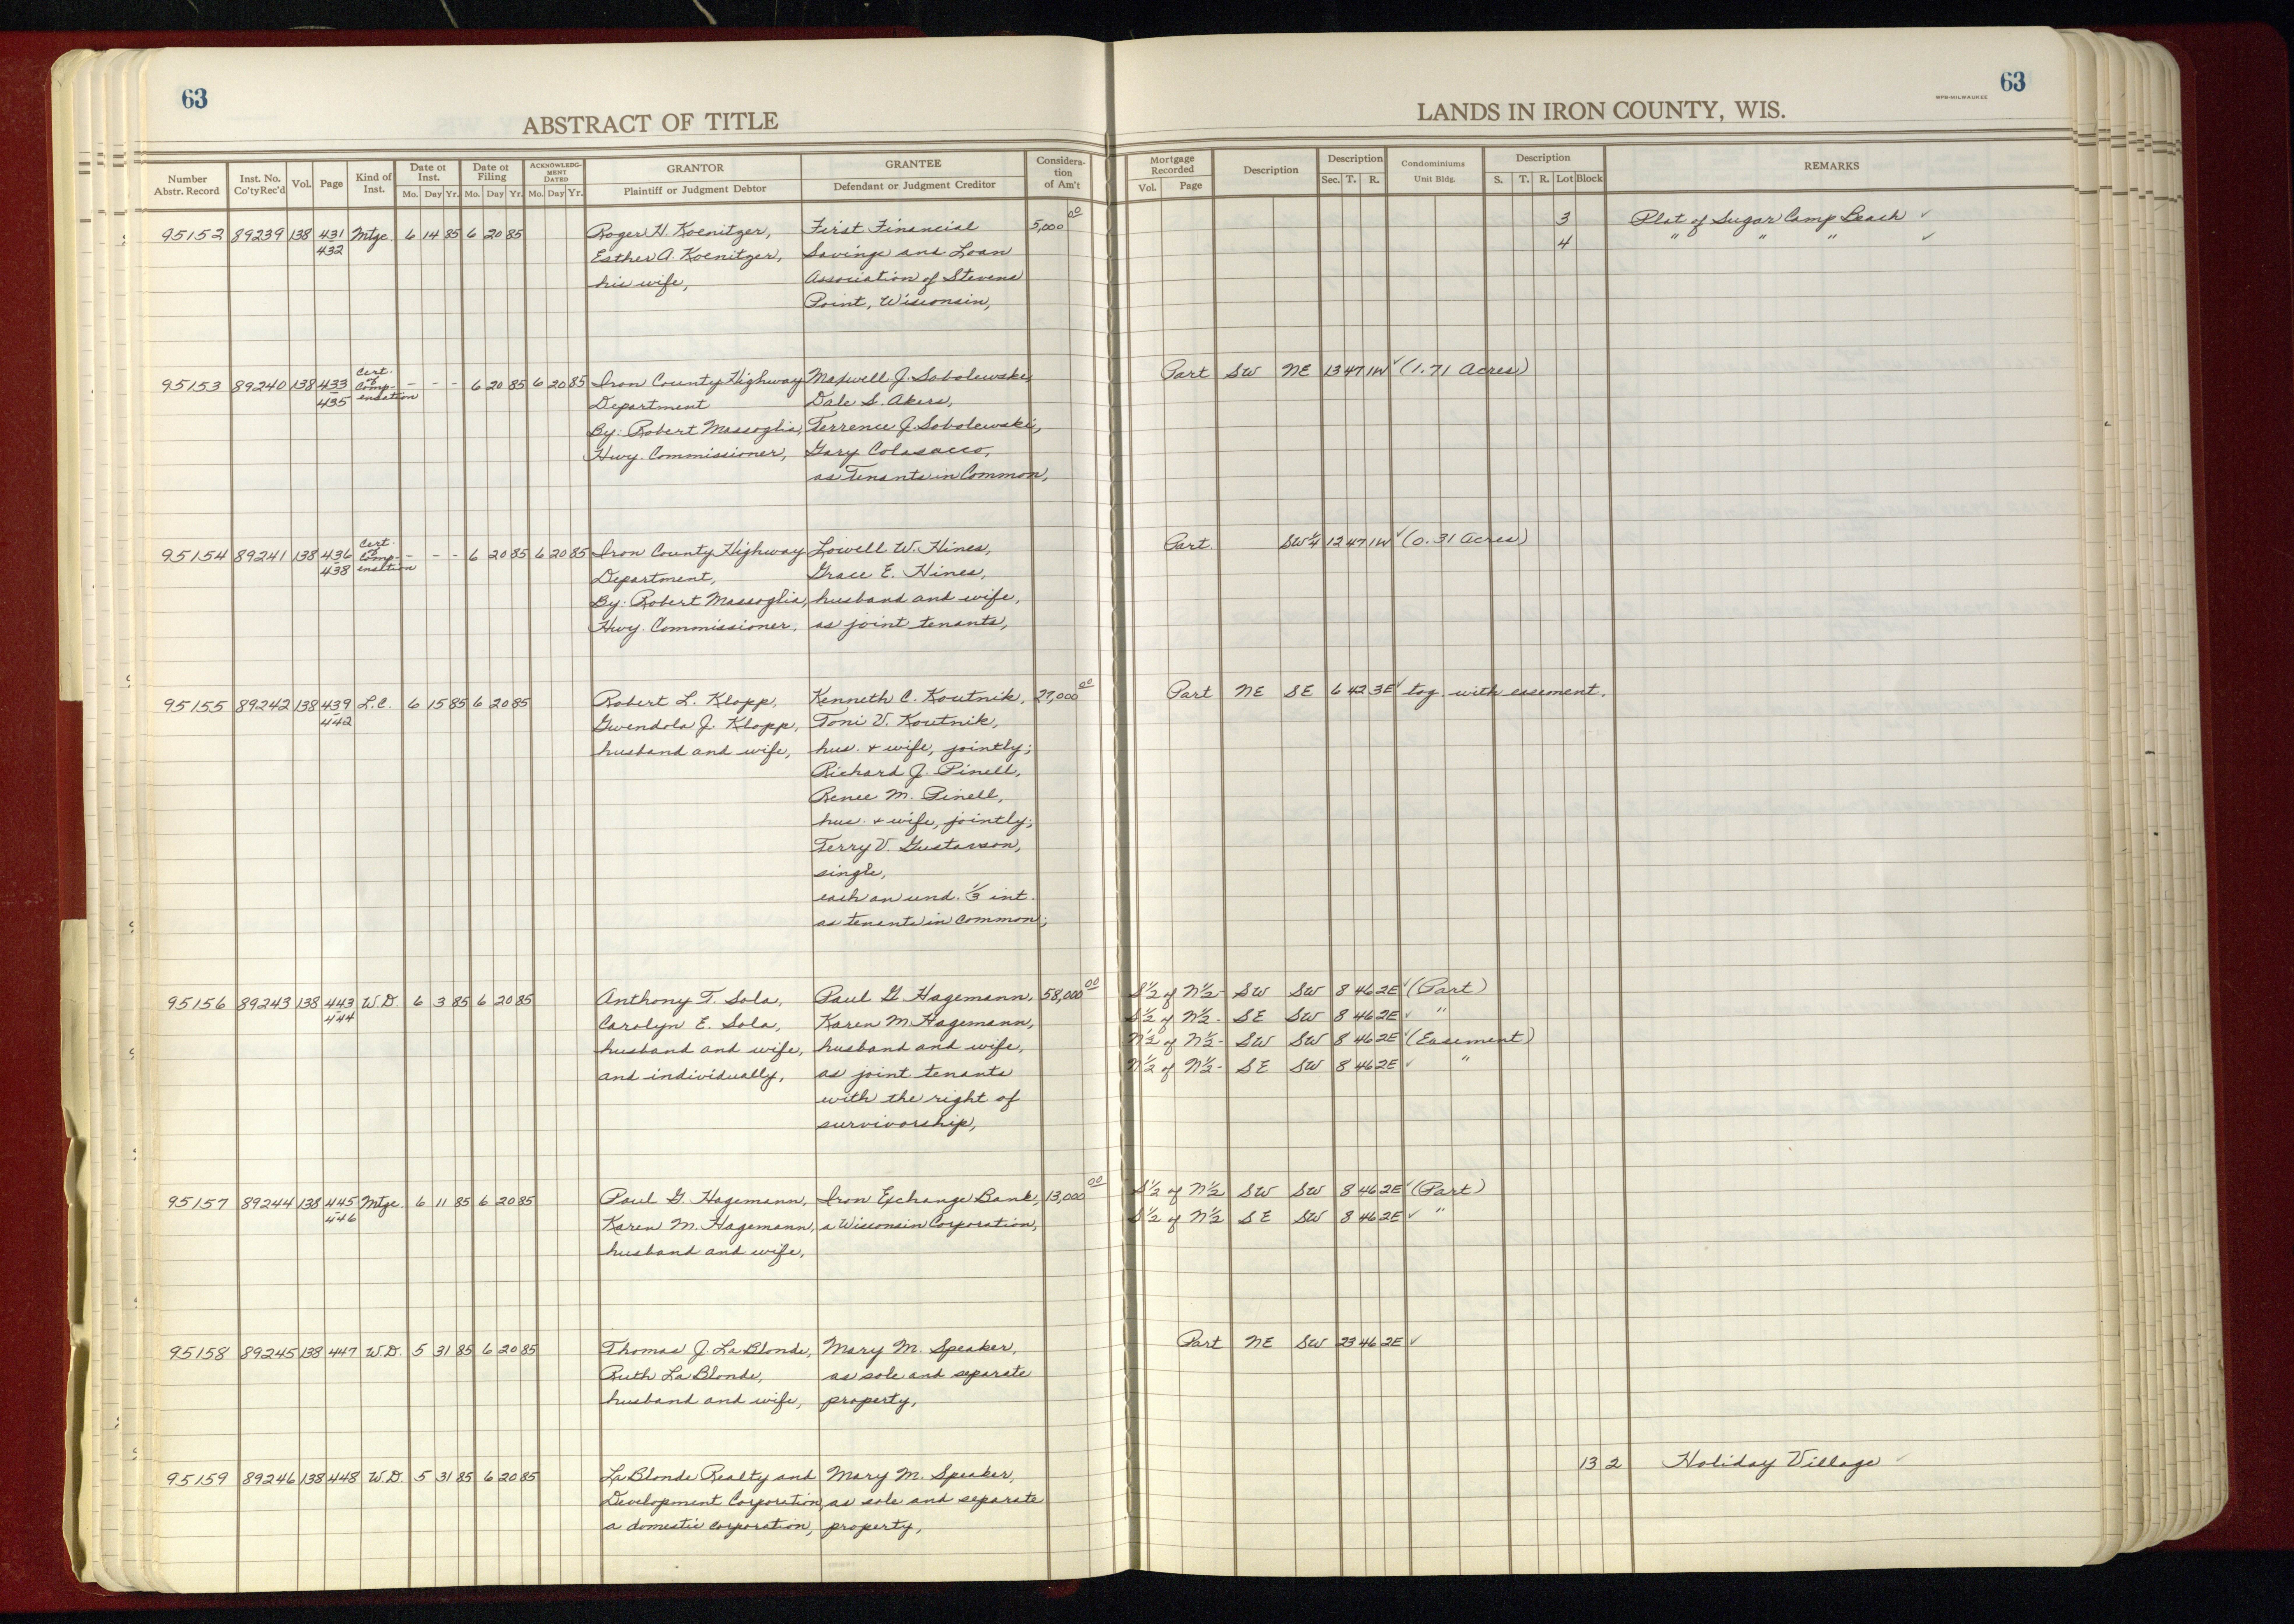 63
ABSTRACT OF TITLE
Number Abstr. Record | Inst. No. Co'ty Rec'd | Vol. | Page | Kind of Inst. | Date of Inst. Mo. Day Yr. | Date of Filing Mo. Day Yr. | ACKNOWLEDGMENT DATED Mo. Day Yr. | GRANTOR Plaintiff or Judgment Debtor | GRANTEE Defendant or Judgment Creditor | Considera-tion of Am't
95152 89239 138 431 Mtge. 6 14 85 6 20 85 Roger H. Koenitzer, First Financial 5,000 00
432 Esther A. Koenitzer, Savings and Loan
his wife, Association of Stevens
Point, Wisconsin,
95153 89240 138 433-435 Cert. of Comp-ensation - - - 6 20 85 6 20 85 Iron County Highway Maxwell J. Sobolewski,
Department Dale S. Akers,
By: Robert Massoglia, Terrence J. Sobolewski,
Hwy. Commissioner, Gary Colasacco,
as Tenants in Common,
95154 89241 138 436-438 Cert. of Comp-ensation - - - 6 20 85 6 20 85 Iron County Highway Lowell W. Hines,
Department, Grace E. Hines,
By: Robert Massoglia, husband and wife,
Hwy. Commissioner, as joint tenants,
95155 89242 138 439-442 L.C. 6 15 85 6 20 85 Robert L. Klopp, Kenneth C. Koutnik, 27,000 00
Gwendola J. Klopp, Toni V. Koutnik,
husband and wife, hus. + wife, jointly;
Richard J. Pinell,
Renee M. Pinell,
hus. + wife, jointly;
Terry V. Gustavson,
single,
each an und. 1/3 int.
as tenants in common;
95156 89243 138 443-444 W.D. 6 3 85 6 20 85 Anthony T. Sola, Paul G. Hagemann, 58,000 00
Carolyn E. Sola, Karen M. Hagemann,
husband and wife, husband and wife,
and individually, as joint tenants
with the right of
survivorship,
95157 89244 138 445-446 Mtge. 6 11 85 6 20 85 Paul G. Hagemann, Iron Exchange Bank, 13,000 00
Karen M. Hagemann, a Wisconsin Corporation,
husband and wife,
95158 89245 138 447 W.D. 5 31 85 6 20 85 Thomas J. LaBlonde, Mary M. Speaker,
Ruth LaBlonde, as sole and separate
husband and wife, property,
95159 89246 138 448 W.D. 5 31 85 6 20 85 LaBlonde Realty and Mary M. Speaker,
Development Corporation, as sole and separate
a domestic corporation, property,
63
WPB-MILWAUKEE
LANDS IN IRON COUNTY, WIS.
Mortgage Recorded Vol. Page | Description | Description Sec. T. R. | Condominiums Unit Bldg. | Description S. T. R. Lot Block | REMARKS
3 Plat of Sugar Camp Beach ✓
4 " " " ✓
Part SW NE 13 47 1W ✓ (1.71 Acres)
Part. SW¼ 12 47 1W ✓ (0.31 Acres)
Part NE SE 6 42 3E ✓ tog. with easement.
S½ of N½- SW SW 8 46 2E ✓ (Part)
S½ of N½- SE SW 8 46 2E ✓ "
N½ of N½- SW SW 8 46 2E ✓ (Easement)
N½ of N½- SE SW 8 46 2E ✓ "
S½ of N½ SW SW 8 46 2E ✓ (Part)
S½ of N½ SE SW 8 46 2E ✓ "
Part NE SW 23 46 2E ✓
13 2 Holiday Village ✓